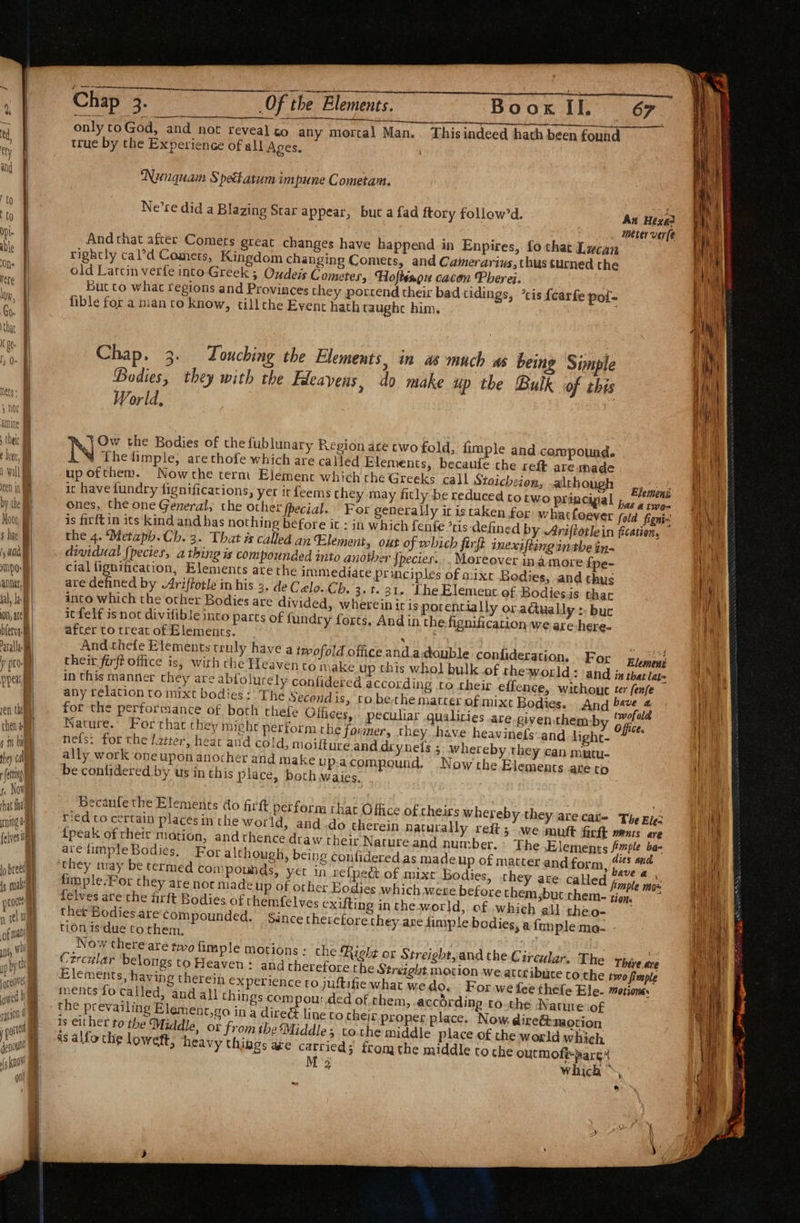 Chap 3. Of the Elements. Book II. 67
only to God, and not reveal to any mortal Man. This indeed hath been found
true by the Experience of all Ages.
Nunquam Spectatum impune Cometam.
Ne're did a Blazing Star appear, but a sad story follow'd.
An Hexa-
meter verse
And that after Comets great changes have happend in Enpires, so that Lucan
rightly cal'd Comets, Kingdom changing Comets, and Camerarius, thus turned the
old Lattin verse into Greek; Oudeis Cometes,
But to what regions and Provinces they portend their bad tidings, 'tis scarse pos-
sible for a man to know, till the Event hath taught him.
Chap. 3. Touching the Elements, in as much as being Simple
Bodies, they with the Heavens, do make up the Bulk of this
World,
Now the Bodies of the sublunary Region are two fold, simple and compound.
The simple, are those which are called Elements, because the rest are made
up of them. Now the term Element which the Greeks call Stoicheion, although
it have sundry significations, yet it seems they may fitly be reduced to two principal
ones, the one General, the other special. For generally it is taken for whatsoever
is first in its kind and has nothing before it: in which sense 'tis defined by Aristotle in
the 4. Metaph. Ch. 3. That is called an Element, out of which first inexisting in the in-
dividual species, a thing is compounded into another species. Moreover in a more spe-
cial signification, Elements are the immediate principles of mixt Bodies, and thus
are defined by Aristotle in his 3. de Cælo. Ch. 3. t. 31. The Element of Bodies is that
into which the other Bodies are divided, wherein it is potentially or actually: but
it self is not divisible into parts of sundry sorts. And in the signification we are here-
after to treat of Elements.
Element
has a two-
fold signi-
fication,
And these Elements truly have a twofold office and a double consideration. For
their first office is, with the Heaven to make up this whol bulk of the world: and
in this manner they are absolutely considered according to their essence, without
any relation to mixt bodies: The Second is, to be the matter of mixt Bodies. And
for the performance of both these Offices, peculiar qualities are given them by
Nature. For that they might perform the former, they have heaviness and light-
ness: for the latter, heat and cold, moisture and dryness; whereby they can mutu-
ally work one upon another and make up a compound. Now the Elements are to
be considered by us in this place, both waies.
Element
in that lat-
ter sense
have a
twofold
Office.
Because the Elements do first perform that Office of theirs whereby they are car-
ried to certain places in the world, and do therein naturally rest; we must first
speak of their motion, and thence draw their Nature and number. The Elements
are simple Bodies. For although, being considered as made up of matter and form,
they may be termed compounds, yet in respect of mixt Bodies, they are called
simple. For they are not made up of other Bodies which were before them, but them-
selves are the first Bodies of themselves existing in the world, of which all the o-
ther Bodies are compounded. Since therefore they are simple bodies, a simple mo-
tion is due to them.
The Ele-
ments are
simple bo-
dies and
have a
simple mo-
tion.
Now there are two simple motions: the Right or Streight, and the Circular. The
Circular belongs to Heaven: and therefore the Streight motion we attribute to the
Elements, having therein experience to justifie what we do. For we see these Ele-
ments so called, and all things compounded of them, according to the Nature of
the prevailing Element, go in a direct line to their proper place. Now direct motion
is either to the Middle, or from the Middle; to the middle place of the world which
is also the lowest, heavy things are carried; from the middle to the outmost part
There are
two simple
motions.
M 2
which